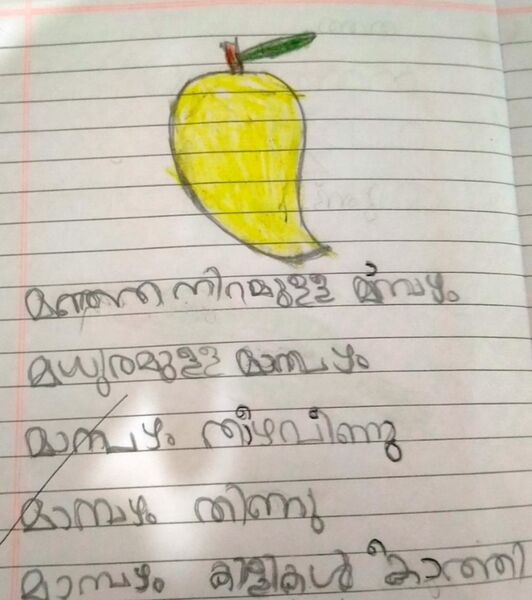 മഞ്ഞ നിറമുള്ള മാമ്പഴം
മധുരമുള്ള മാമ്പഴം
മാമ്പഴം താഴെവീണു
മാമ്പഴം തിന്നു
മാമ്പഴം കിളികൾ കൊത്തി